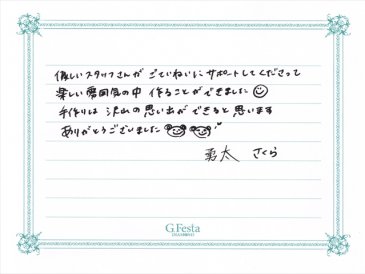 優しいスタッフさんがごていねいにサポートしてくださって
楽しい雰囲気の中 作ることができました
手作りは沢山の思い出ができると思います
ありがとうございました
勇太 さくら
G.Festa